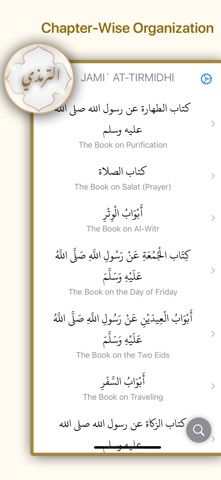 Chapter-Wise Organization
الترمذي
JAMI` AT-TIRMIDHI
كتاب الطهارة عن رسول الله صلى الله
عليه وسلم
The Book on Purification
كتاب الصلاة
The Book on Salat (Prayer)
أَبْوَابُ الْوِتْرِ
The Book on Al-Witr
كِتَاب الْجُمُعَةِ عَنْ رَسُولِ اللَّهِ صَلَّى اللَّهُ
عَلَيْهِ وَسَلَّمَ
The Book on the Day of Friday
أَبْوَابُ الْعِيدَيْنِ عَنْ رَسُولِ اللَّهِ صَلَّى اللَّهُ
عَلَيْهِ وَسَلَّمَ
The Book on the Two Eids
أَبْوَابُ السَّفَرِ
The Book on Traveling
كتاب الزكاة عن رسول الله صلى الله
عليه وسلم